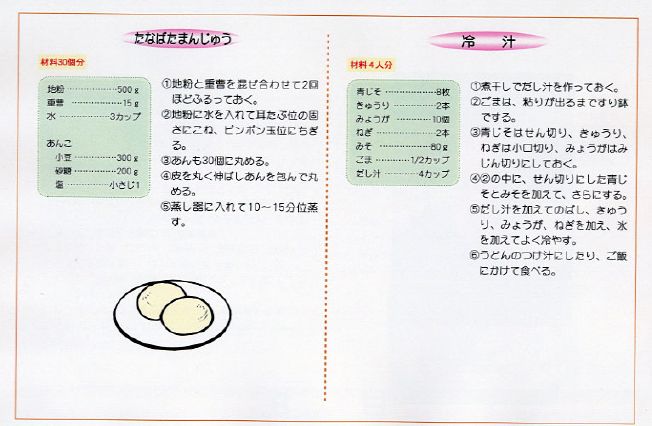 たなばたまんじゅう
材料30個分
地粉 …………500g
重曹 …………15g
水 …………3カップ
あんこ
小豆 …………300g
砂糖 …………200g
塩 …………小さじ1
①地粉と重曹を混ぜ合わせて2回
ほどふるっておく。
②地粉に水を入れて耳たぶ位の固
さにこね、ピンポン玉位にちぎ
る。
③あんも30個に丸める。
④皮を丸く伸ばしあんを包んで丸
める。
⑤蒸し器に入れて10〜15分位蒸
す。
冷 汁
材料4人分
青じそ …………8枚
きゅうり …………2本
みょうが …………10個
ねぎ …………2本
みそ …………80g
ごま …………1/2カップ
だし汁 …………4カップ
①煮干しでだし汁を作っておく。
②ごまは、粘りが出るまですり鉢
でする。
③青じそはせん切り、きゅうり、
ねぎは小口切り、みょうがはみ
じん切りにしておく。
④②の中に、せん切りにした青じ
そとみそを加えて、さらにする。
⑤だし汁を加えてのばし、きゅう
り、みょうが、ねぎを加え、氷
を加えてよく冷やす。
⑥うどんのつけ汁にしたり、ご飯
にかけて食べる。